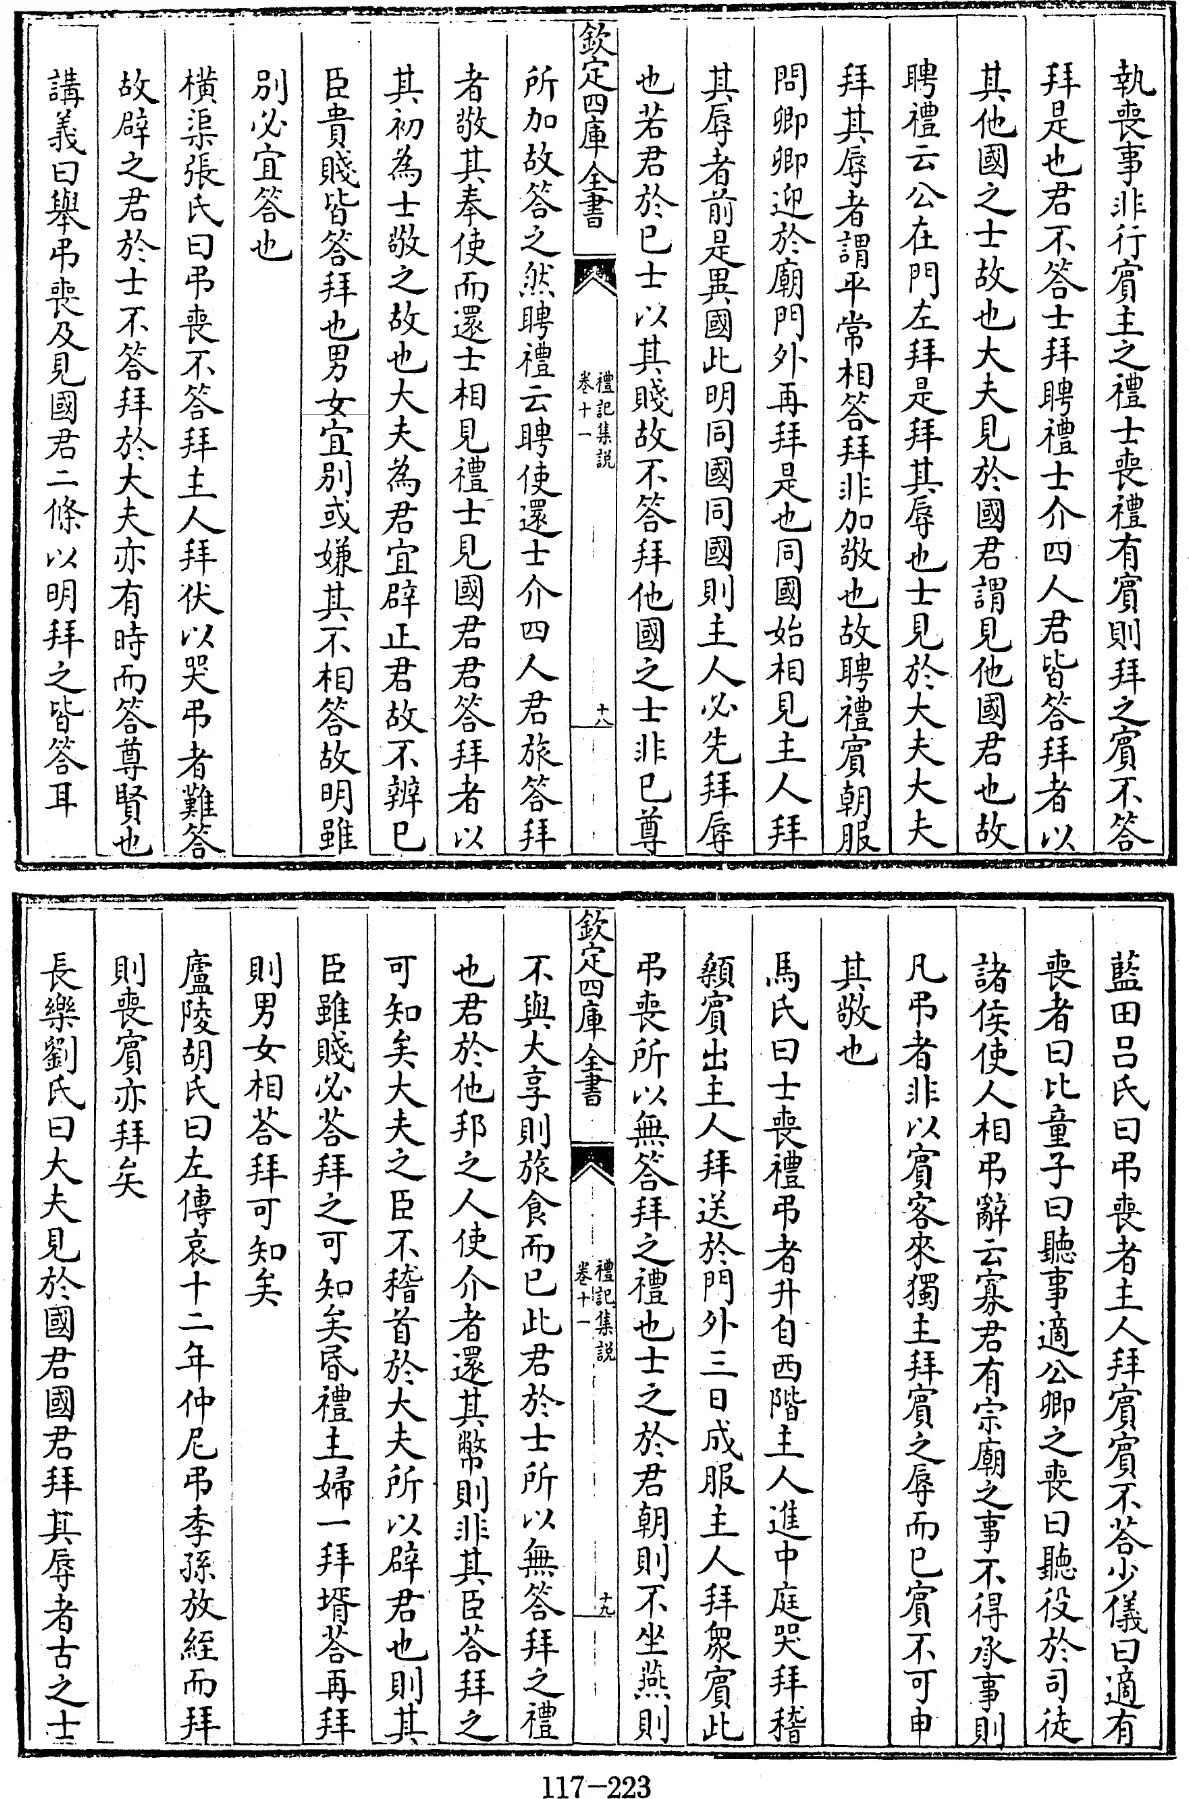 執喪事非行賓主之禮士喪禮有賓則拜之賓不答
拜是也君不答士拜聘禮士介四人君皆答拜者以
其他國之士故也大夫見於國君謂見他國君也故
聘禮云公在門左拜是拜其辱也士見於大夫大夫
拜其辱者謂平常相答拜非加敬也故聘禮賓朝服
問卿卿迎於廟門外再拜是也同國始相見主人拜
其辱者前是異國此明同國同國則主人必先拜辱
也若君於已士以其賤故不答拜他國之士非已尊
欽定四庫全書
禮記集說
卷十一
十八
所加故答之然聘禮云聘使還士介四人君旅答拜
者敬其奉使而還士相見禮士見國君君答拜者以
其初為士敬之故也大夫為君宜辟正君故不辨已
臣貴賤皆答拜也男女宜別或嫌其不相答故明雖
別必宜答也
橫渠張氏曰弔喪不答拜主人拜伏以哭弔者難答
故辟之君於士不答拜於大夫亦有時而答尊賢也
講義曰舉弔喪及見國君二條以明拜之皆答耳
藍田呂氏曰弔喪者主人拜賓賓不荅少儀曰適有
喪者曰比童子曰聽事適公卿之喪曰聽役於司徒
諸侯使人相弔辭云寡君有宗廟之事不得承事則
凡弔者非以賓客來獨主拜賓之辱而已賓不可申
其敬也
馬氏曰士喪禮弔者升自西階主人進中庭哭拜稽
顙賓出主人拜送於門外三日成服主人拜衆賓此
弔喪所以無答拜之禮也士之於君朝則不坐燕則
欽定四庫全書
禮記集說
卷十一
十九
不與大享則旅食而已此君於士所以無答拜之禮
也君於他邦之人使介者還其幣則非其臣荅拜之
可知矣大夫之臣不稽首於大夫所以辟君也則其
臣雖賤必荅拜之可知矣昏禮主婦一拜壻荅再拜
則男女相荅拜可知矣
廬陵胡氏曰左傳哀十二年仲尼弔季孫放絰而拜
則喪賓亦拜矣
長樂劉氏曰大夫見於國君國君拜其辱者古之士
117-223